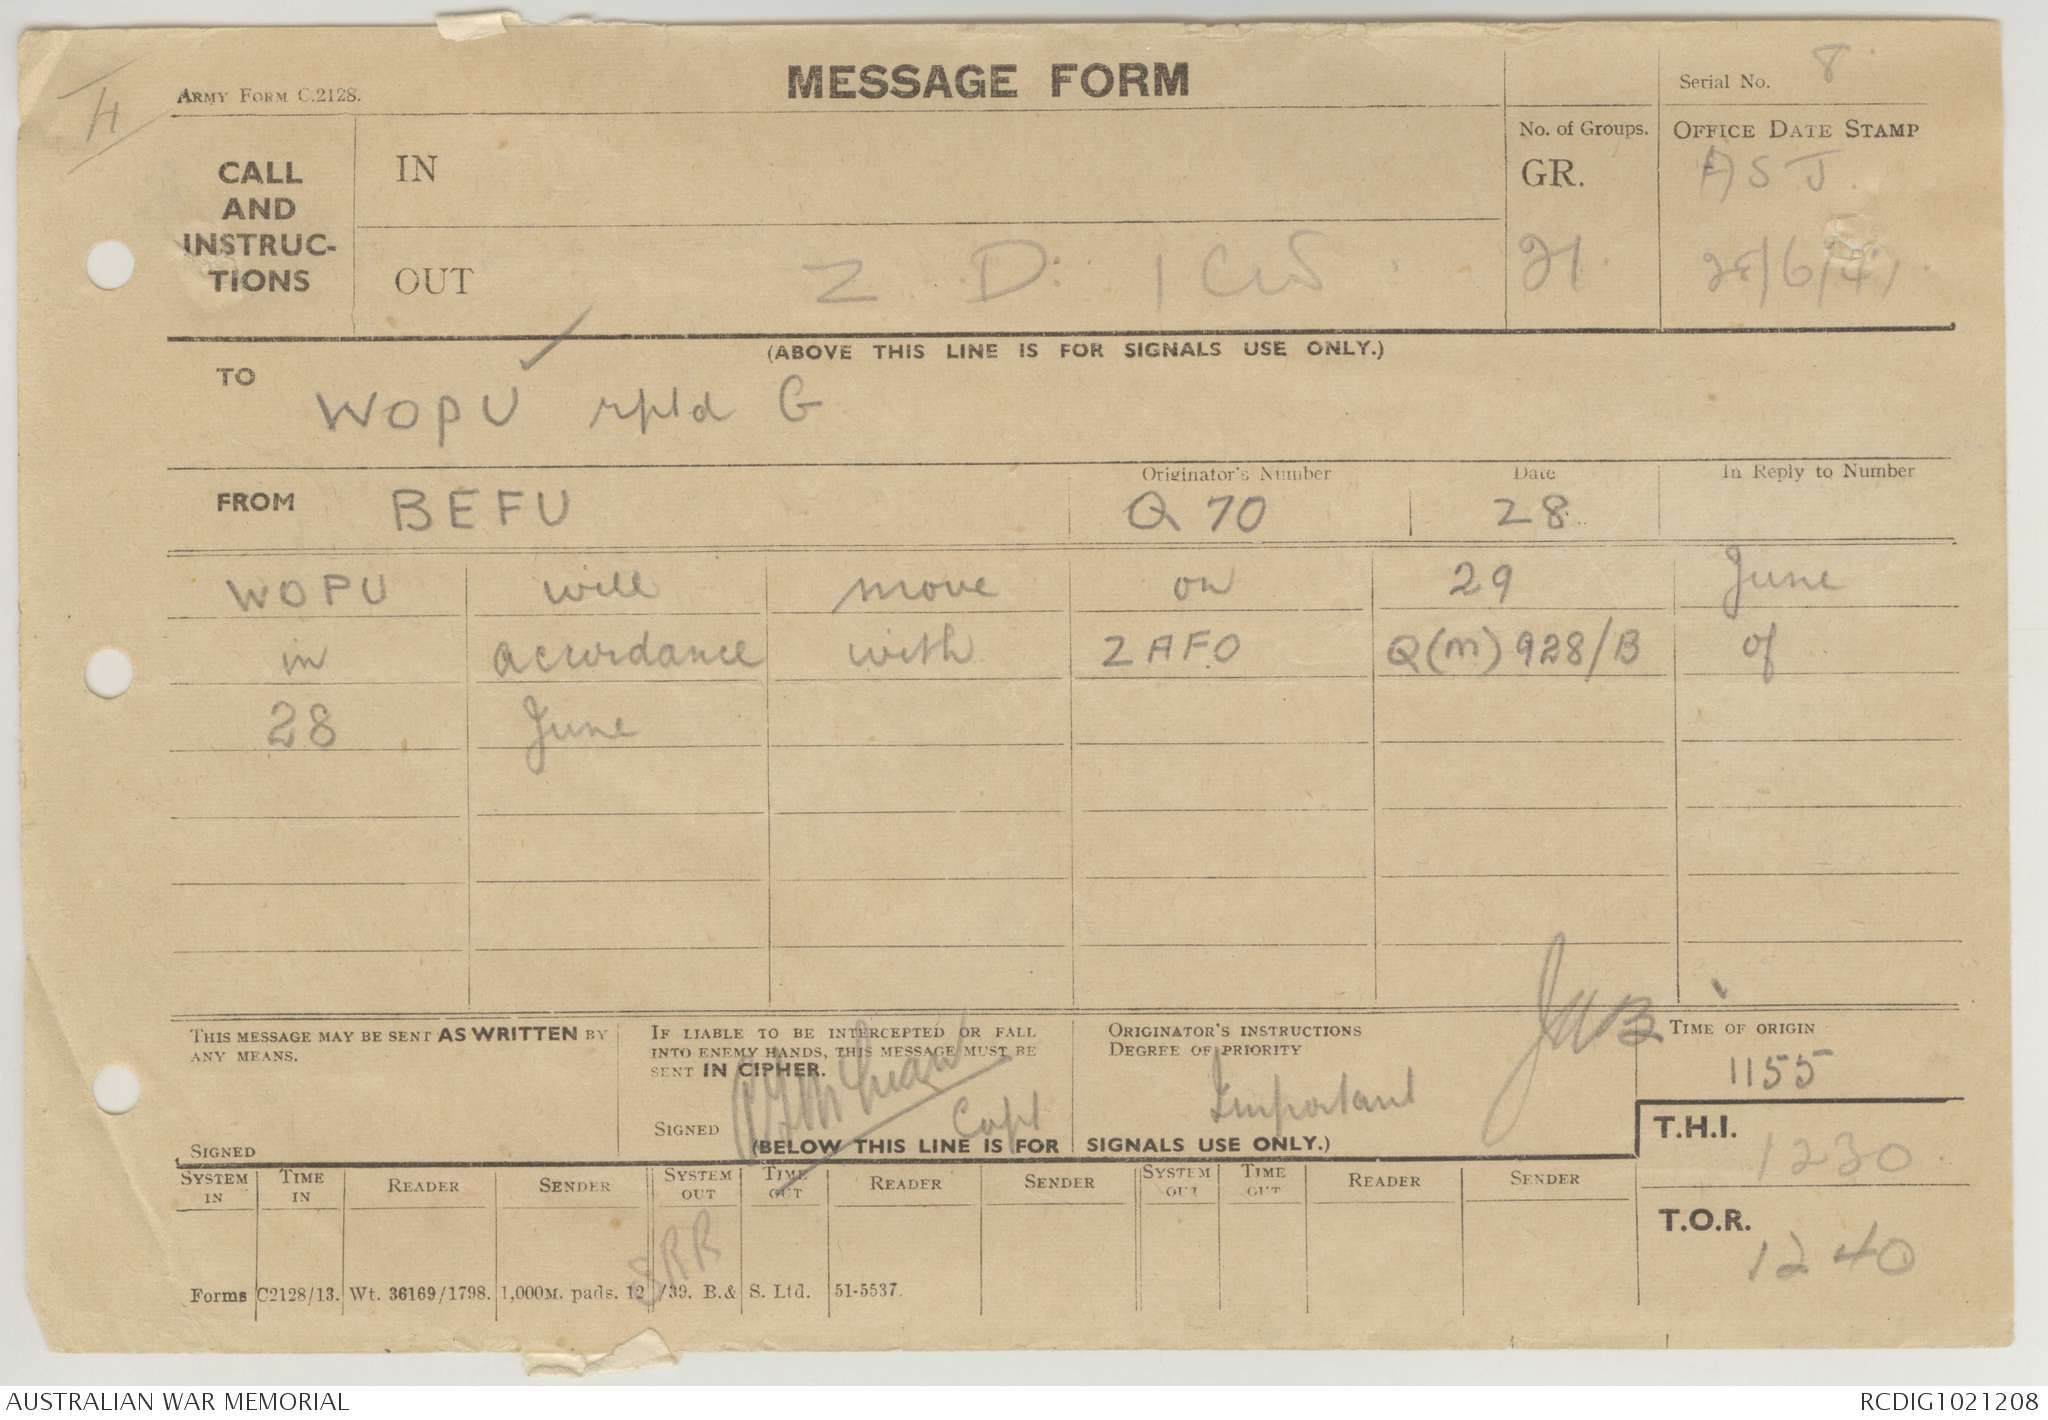 MESSAGE FORM
Army Form C.2128.
Serial No. 8
H
CALL AND INSTRUC- TIONS
IN
No. of Groups.
GR.
OFFICE DATE STAMP
ASJ.
OUT
Z D. 1
21.
28/6/41.
(ABOVE THIS LINE IS FOR SIGNALS USE ONLY.)
TO
WOPU rptd G
Originator's Number
Date
In Reply to Number
FROM
BEFU
Q 70
28
WOPU will move on 29 June
in accordance with ZAFO Q(M) 928/B of
28 June
THIS MESSAGE MAY BE SENT AS WRITTEN BY
ANY MEANS.
SIGNED
IF LIABLE TO BE INTERCEPTED OR FALL
INTO ENEMY HANDS, THIS MESSAGE MUST BE
SENT IN CIPHER.
SIGNED
Capt
ORIGINATOR'S INSTRUCTIONS
DEGREE OF PRIORITY
Important
JWB
TIME OF ORIGIN
1155
(BELOW THIS LINE IS FOR SIGNALS USE ONLY.)
T.H.I.
1230.
SYSTEM IN
TIME IN
READER
SENDER
SYSTEM OUT
TIME OUT
READER
SENDER
SYSTEM OUT
TIME OUT
READER
SENDER
T.O.R.
1240
Forms C2128/13. Wt. 36169/1798. 1,000M. pads. 12/39. B.& S. Ltd. 51-5537.
AUSTRALIAN WAR MEMORIAL
RCDIG1021208